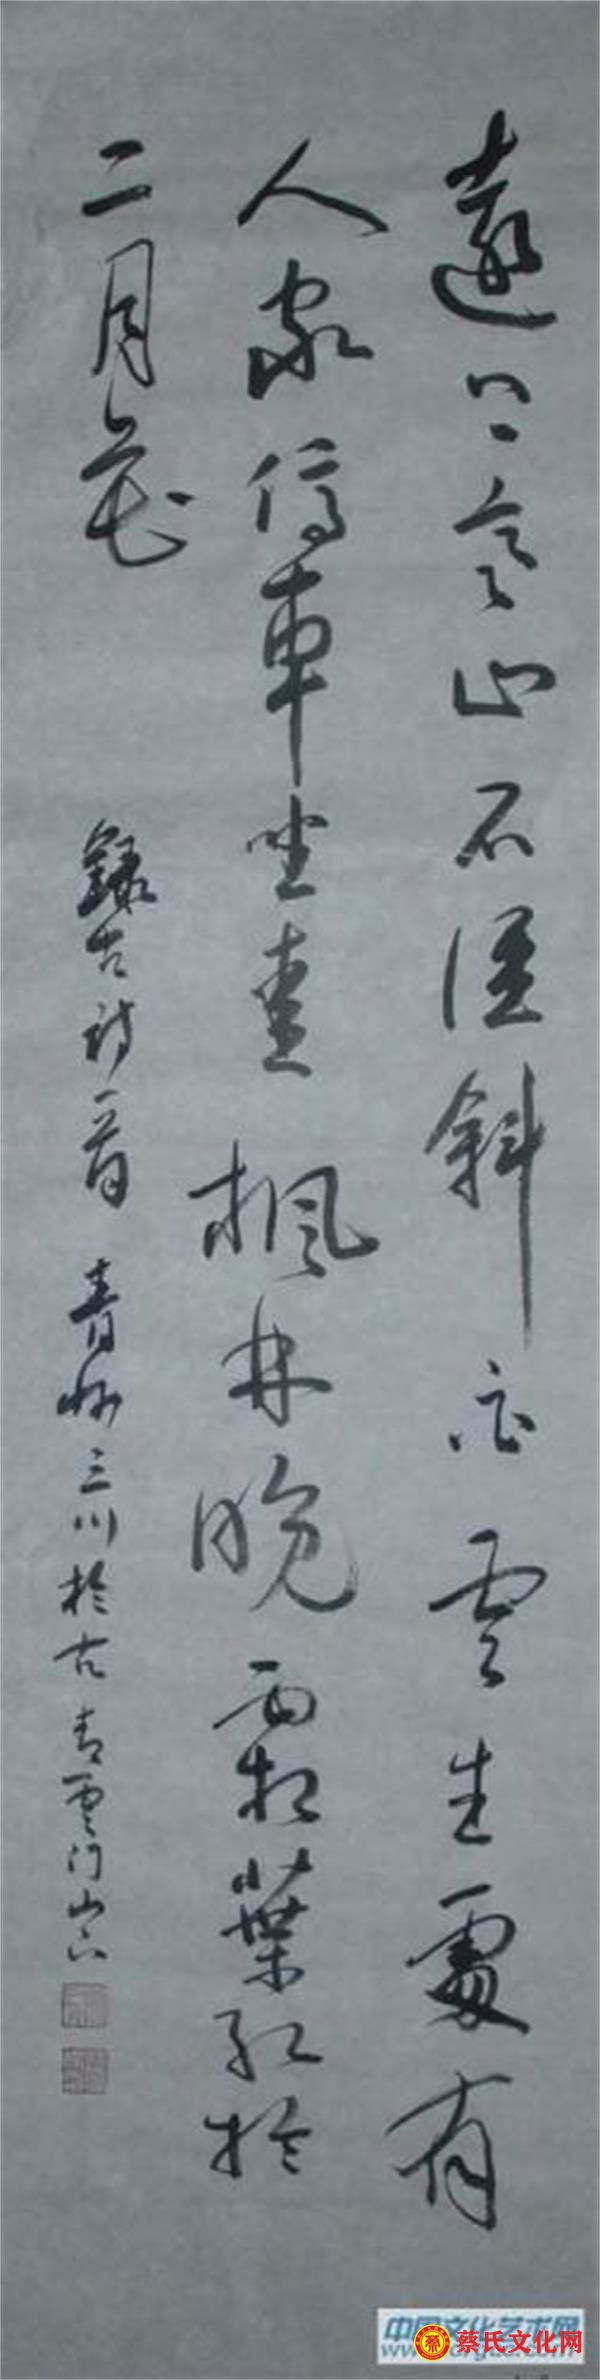 遠上寒山石徑斜白雲生處有
人家停車坐愛楓林晚霜葉紅於
二月花
錄古詩一首 青州三川於古青雲门山下
中国文化艺术网
蔡氏文化网